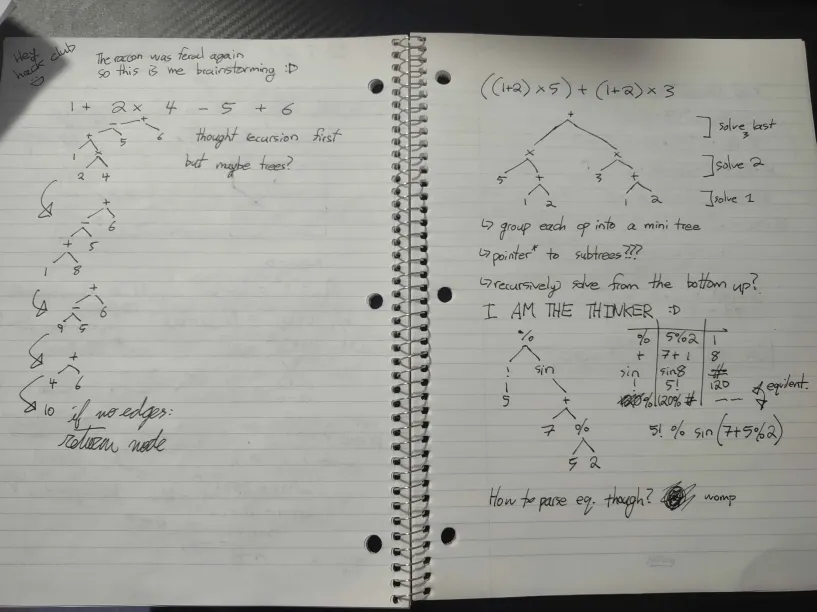 Hey
hack club
The racoon was feral again
so this is me brainstorming :D
1 + 2 × 4 - 5 + 6
+
- 6
+ 5
1 ×
2 4
thought recursion first
but maybe trees?
+
- 6
+ 5
1 8
+
- 6
9 5
+
4 6
10
if no edges:
return node
((1+2) × 5) + (1+2) × 3
+
× ×
5 + 3 +
1 2 1 2
] solve 3 last
] solve 2
] solve 1
↳ group each op into a mini tree
↳ pointer* to subtrees???
↳ recursively solve from the bottom up?
I AM THE THINKER :D
%
! sin
5 +
7 %
5 2
% 5%2 1
+ 7+1 8
sin sin8 #
! 5! 120
% 120% # --
equilent
5! % sin(7+5%2)
How to parse eq. though? womp